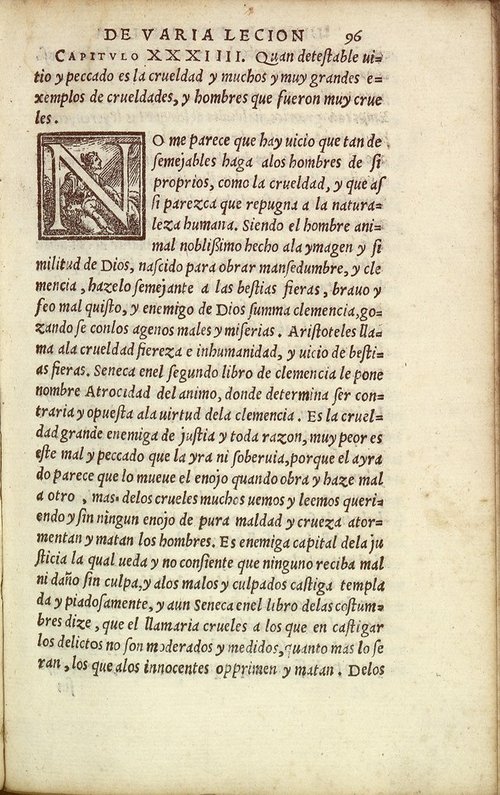 DE VARIA LECION 96
CAPITVLO XXXIIII. Quan deteſtable ui=
tio y peccado es la crueldad y muchos y muy grandes e=
xemplos de crueldades, y hombres que fueron muy crue
les.
NO me parece que hay uicio que tan de
ſemejables haga alos hombres de ſi
proprios, como la crueldad, y que aſ
ſi parezca que repugna a la natura=
leza humana. Siendo el hombre ani=
mal nobliſsimo hecho ala ymagen y ſi
militud de Dios, naſcido para obrar manſedumbre, y cle
mencia, hazelo ſemejante a las beſtias fieras, brauo y
feo mal quiſto, y enemigo de Dios ſumma clemencia, go=
zando ſe conlos agenos males y miſerias. Ariſtoteles lla=
ma ala crueldad fiereza e inhumanidad, y uicio de beſti=
as fieras. Seneca enel ſegundo libro de clemencia le pone
nombre Atrocidad del animo, donde determina ſer con=
traria y opueſta ala uirtud dela clemencia. Es la cruel=
dad grande enemiga de juſtia y toda razon, muy peor es
eſte mal y peccado que la yra ni ſoberuia, porque el ayra
do parece que lo mueue el enojo quando obra y haze mal
a otro, mas delos crueles muchos uemos y leemos queri=
endo y ſin ningun enojo de pura maldad y crueza ator=
mentan y matan los hombres. Es enemiga capital dela ju
ſticia la qual ueda y no conſiente que ninguno reciba mal
ni daño ſin culpa, y alos malos y culpados caſtiga templa
da y piadoſamente, y aun Seneca enel libro delas coſtum=
bres dize, que el llamaria crueles a los que en caſtigar
los delictos no ſon moderados y medidos, quanto mas lo ſe
ran, los que alos innocentes opprimen y matan. Delos